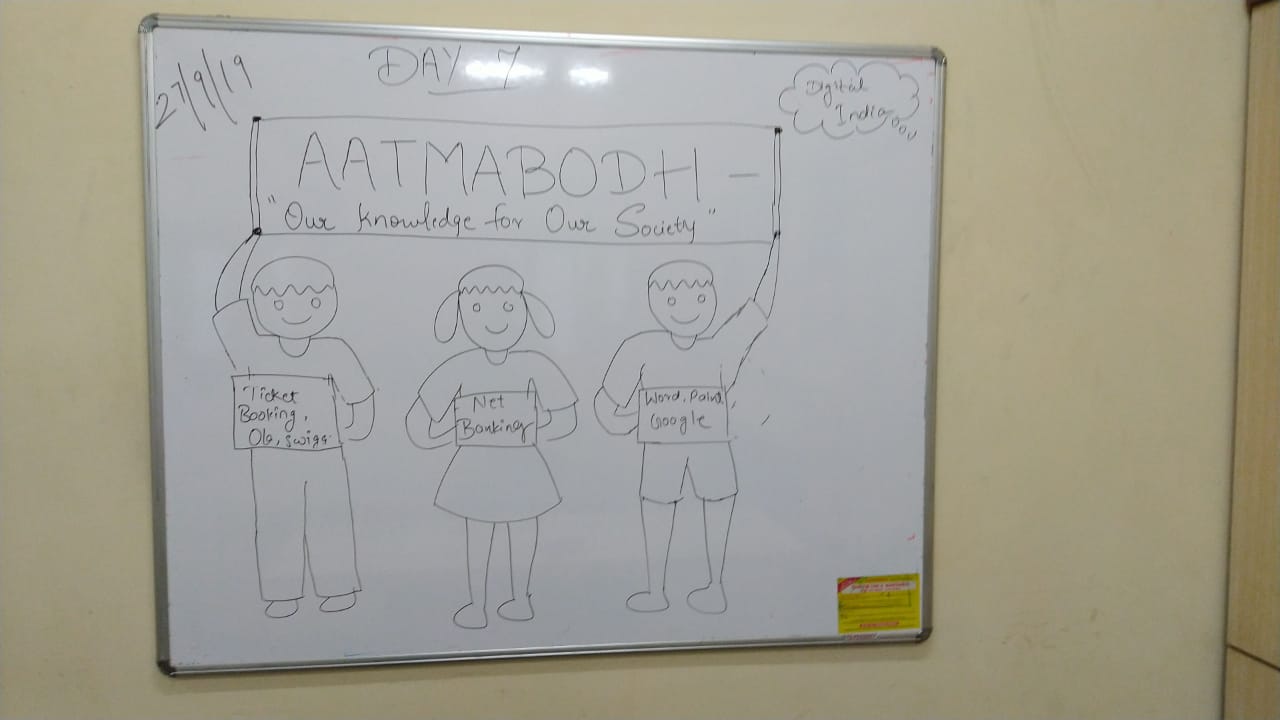 27/9/19
DAY 7
Digital
India
AATMABODH -
"Our knowledge for Our Society"
Ticket
Booking,
Ola, swigg
Net
Banking
Word, Paint
Google